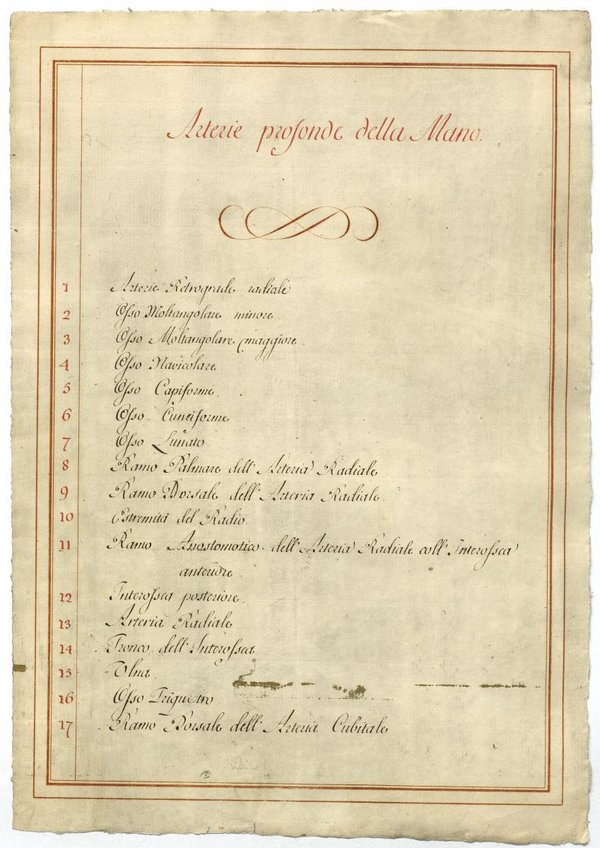 Arterie profonde della Mano.
1 Arterie Retrograde radiali
2 Osso Moltangolare minore
3 Osso Moltangolare maggiore.
4 Osso Navicolare
5 Osso Capiforme.
6 Osso Cuneiforme
7 Osso Lunato
8 Ramo Palmare dell'Arteria Radiale
9 Ramo Dorsale dell'Arteria Radiale.
10 Estremità del Radio
11 Ramo Anostomotico dell'Arteria Radiale coll'Interossea
anteriore
12 Interossea posteriore.
13 Arteria Radiale
14 Tronco dell'Interossea
15 Ulna
16 Osso Triquetro
17 Ramo Dorsale dell'Arteria Cubitale